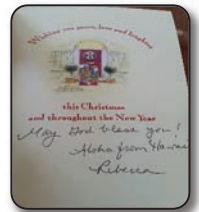 Wishing you peace, love and laughter
this Christmas
and throughout the New Year
May God bless you!
Aloha from Hawaii
Rebecca